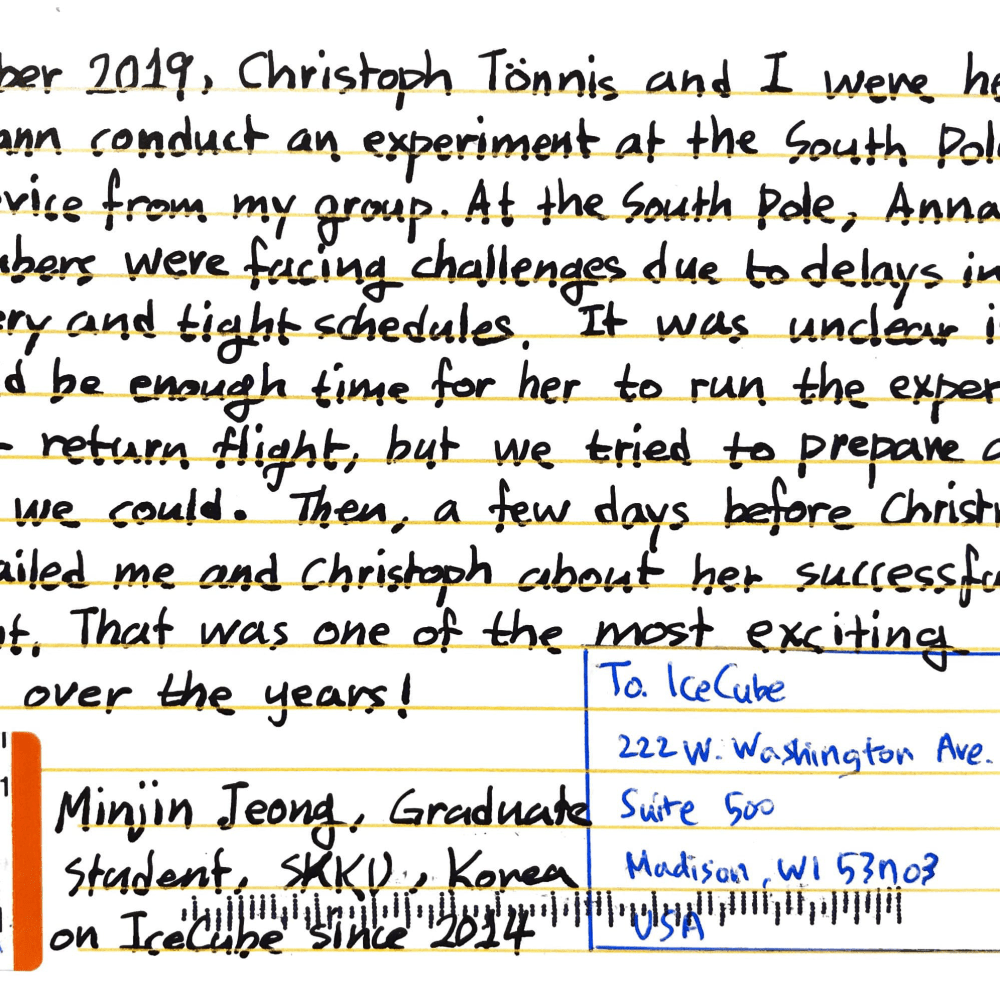 ber 2019, Christoph Tönnis and I were he
ann conduct an experiment at the South Pol
vice from my group. At the South Pole, Anna
bers were facing challenges due to delays in
ery and tight schedules. It was unclear i
d be enough time for her to run the exper
return flight, but we tried to prepare a
we could. Then, a few days before Christ
ailed me and Christoph about her successfu
t. That was one of the most exciting
over the years!
To. IceCube
222 W. Washington Ave.
Suite 500
Madison, WI 53703
USA
Minjin Jeong, Graduate
student, SKKU, Korea
on IceCube since 2014